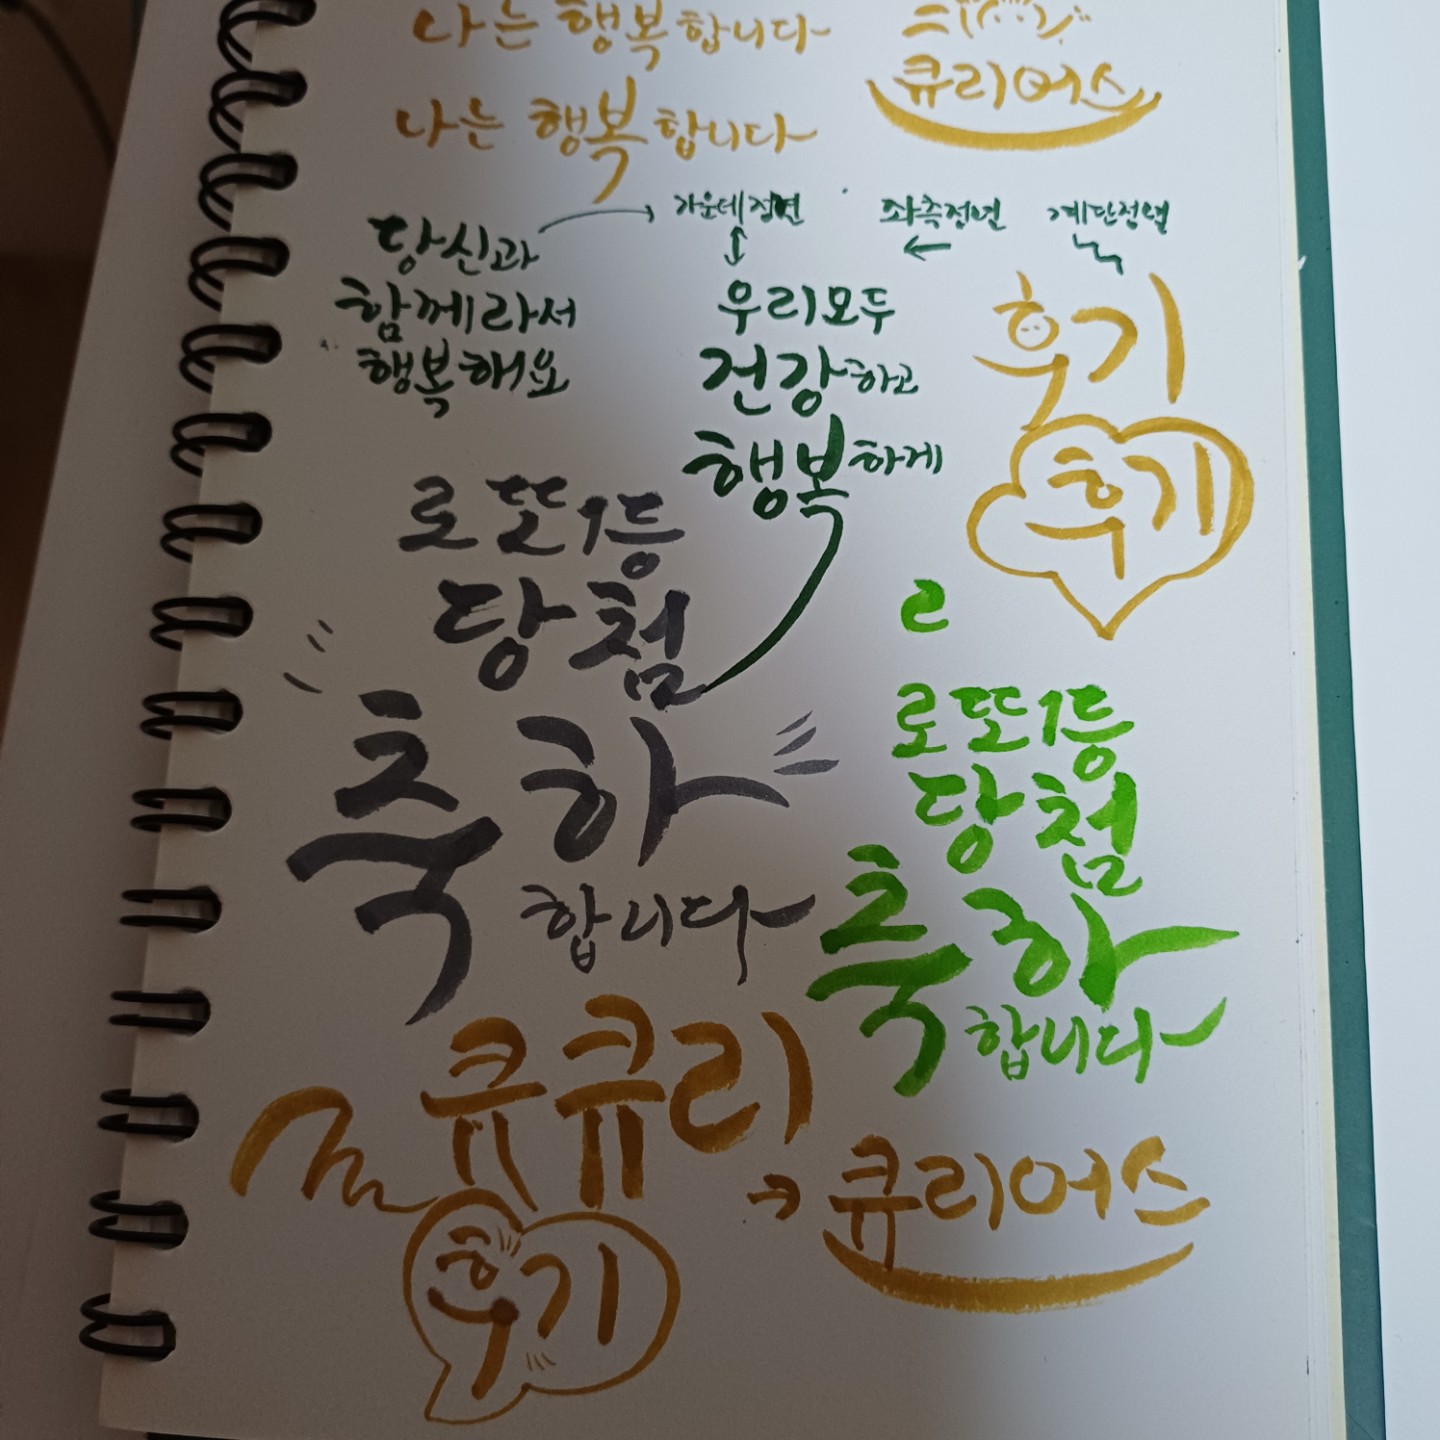 나는 행복합니다
큐리어스
나는 행복합니다
가운데정렬
좌측정렬
계단정렬
당신과
함께라서
행복해요
우리모두
건강하고
행복하게
후기
후기
로또1등
당첨
축하
합니다
ㄹ
로또1등
당첨
축하
합니다
큐큐리
ㅋ 큐리어스
후기